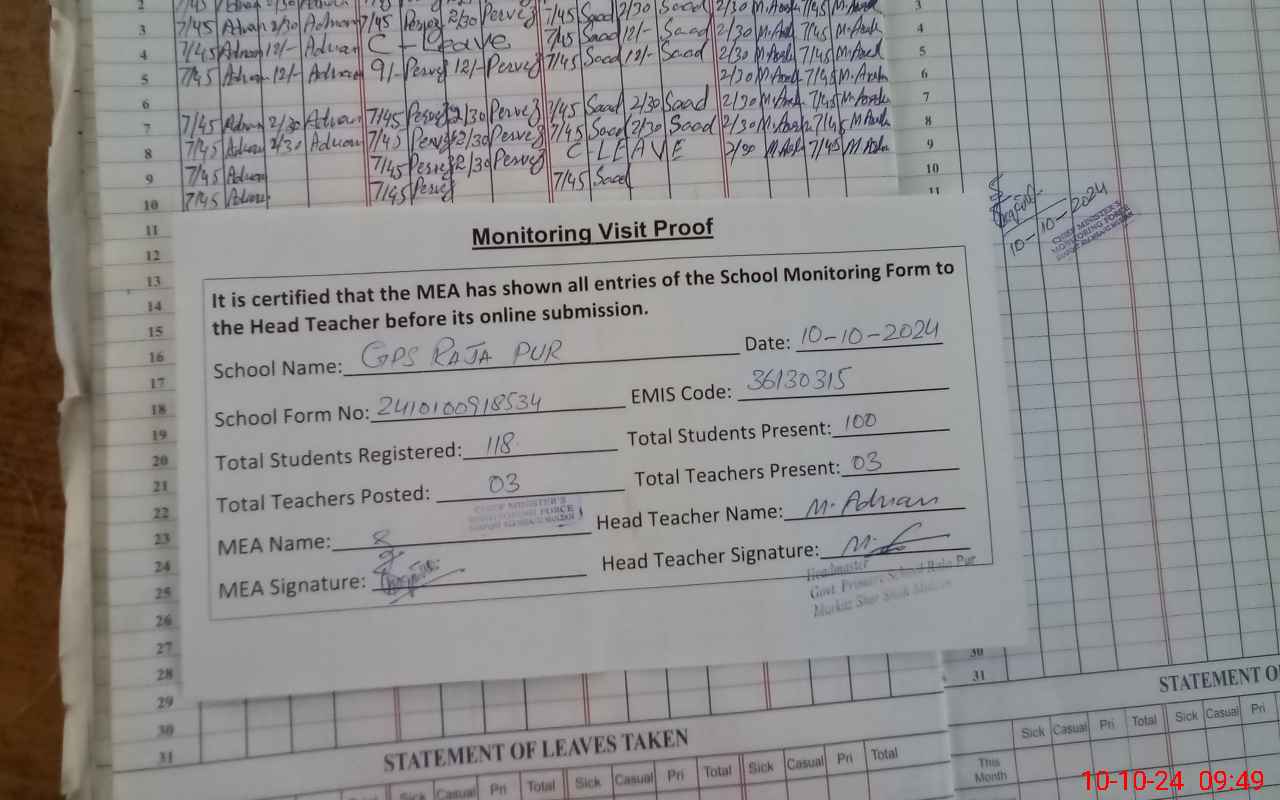 2 7/45 2/30 7/45 Pervez 2/30 Pervez 7/45 Saad 2/30 Saad 2/30 M.Arsh 7/45 3
3 7/45 Adnan 2/30 Adnan C-Leave 7/45 Saad 12/- Saad 2/30 7/45 4
4 7/45 Adnan 12/- Adnan 9/- Pervez 12/- Pervez 7/45 Saad 12/- Saad 2/30 7/45 5
5 7/45 Adnan 12/- Adnan 2/30 7/45 6
6 7/45 Pervez 2/30 Pervez 7/45 Saad 2/30 Saad 2/30 7/45 7
7 7/45 Adnan 2/30 Adnan 7/45 Pervez 2/30 Pervez 7/45 Saad 2/30 Saad 2/30 7/45 8
8 7/45 Adnan 2/30 Adnan 7/45 Pervez 2/30 Pervez C-LEAVE 2/30 7/45 9
9 7/45 Adnan 7/45 Pervez 7/45 Saad 10
10 7/45 Adnan 11
11
12
13
14
15
16
17
18
19
20
21
22
23
24
25
26
27
28
29
30
31
Monitoring Visit Proof
It is certified that the MEA has shown all entries of the School Monitoring Form to
the Head Teacher before its online submission.
School Name: GPS RAJA PUR Date: 10-10-2024
School Form No: 2410100918534 EMIS Code: 36130315
Total Students Registered: 118 Total Students Present: 100
Total Teachers Posted: 03 Total Teachers Present: 03
CHIEF MINISTER'S
MONITORING FORCE
MEA Name: Head Teacher Name: M. Adnan
MEA Signature: Head Teacher Signature:
Headmaster
Govt. Primary School Raja Pur
10-10-2024
CHIEF MINISTER'S
MONITORING FORCE
30
31
STATEMENT OF LEAVES TAKEN
Sick Casual Pri Total Sick Casual Pri Total Sick Casual Pri Total
STATEMENT O
Sick Casual Pri Total Sick Casual Pri
This
Month
10-10-24 09:49